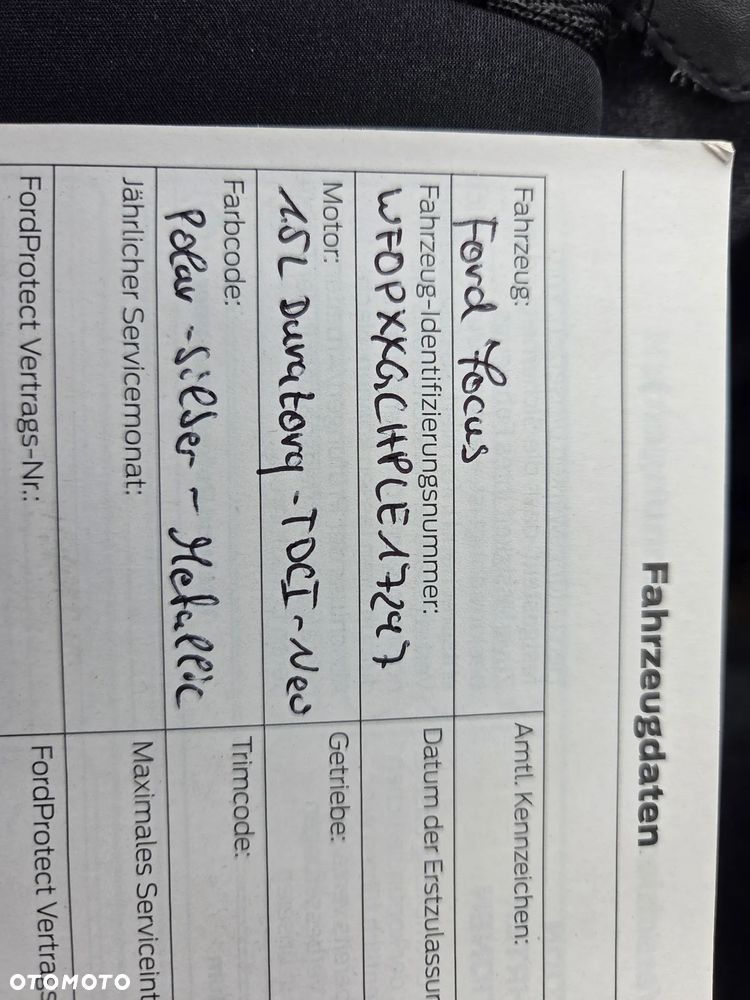 Fahrzeugdaten
Fahrzeug:
Ford Focus
Amtl. Kennzeichen:
Fahrzeug-Identifizierungsnummer:
WF0PXXGCHPLE17247
Datum der Erstzulassun
Motor:
1.5L Duratorq-TDCI-Neu
Getriebe:
Farbcode:
Polar-Silber-Metallic
Trimcode:
Jährlicher Servicemonat:
Maximales Serviceint
FordProtect Vertrags-Nr.:
FordProtect Vertrags
OTOMOTO